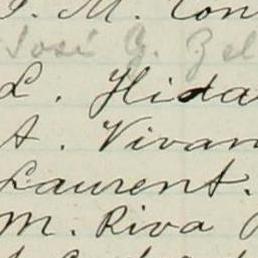 J. M. Con
José G. Zel
L. Hida
A. Vivan
Laurent.
M. Riva